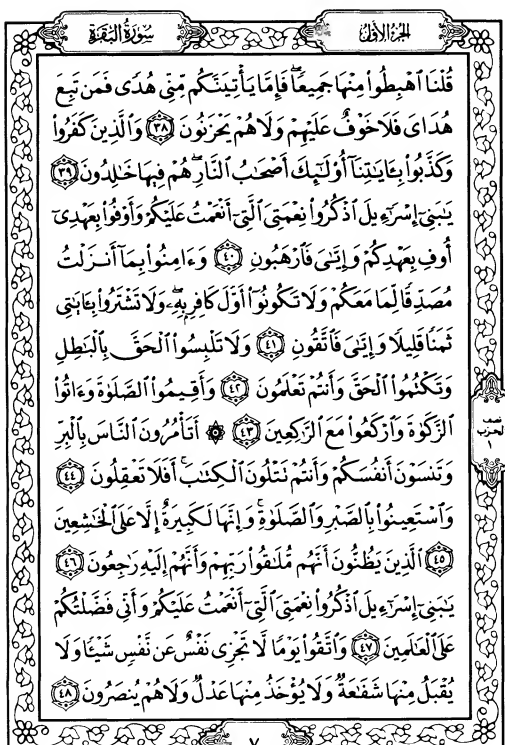 سُورَةُ البَقَرَةِ
الجُزءُ الأَوَّلُ
قُلْنَا ٱهْبِطُوا۟ مِنْهَا جَمِيعًا ۖ فَإِمَّا يَأْتِيَنَّكُم مِّنِّى هُدًى فَمَن تَبِعَ
هُدَاىَ فَلَا خَوْفٌ عَلَيْهِمْ وَلَا هُمْ يَحْزَنُونَ ٣٨ وَٱلَّذِينَ كَفَرُوا۟
وَكَذَّبُوا۟ بِـَٔايَـٰتِنَآ أُو۟لَـٰٓئِكَ أَصْحَـٰبُ ٱلنَّارِ ۖ هُمْ فِيهَا خَـٰلِدُونَ ٣٩
يَـٰبَنِىٓ إِسْرَٰٓءِيلَ ٱذْكُرُوا۟ نِعْمَتِىَ ٱلَّتِىٓ أَنْعَمْتُ عَلَيْكُمْ وَأَوْفُوا۟ بِعَهْدِىٓ
أُوفِ بِعَهْدِكُمْ وَإِيَّـٰىَ فَٱرْهَبُونِ ٤٠ وَءَامِنُوا۟ بِمَآ أَنزَلْتُ
مُصَدِّقًا لِّمَا مَعَكُمْ وَلَا تَكُونُوٓا۟ أَوَّلَ كَافِرٍۭ بِهِۦ ۖ وَلَا تَشْتَرُوا۟ بِـَٔايَـٰتِى
ثَمَنًا قَلِيلًا وَإِيَّـٰىَ فَٱتَّقُونِ ٤١ وَلَا تَلْبِسُوا۟ ٱلْحَقَّ بِٱلْبَـٰطِلِ
وَتَكْتُمُوا۟ ٱلْحَقَّ وَأَنتُمْ تَعْلَمُونَ ٤٢ وَأَقِيمُوا۟ ٱلصَّلَوٰةَ وَءَاتُوا۟
ٱلزَّكَوٰةَ وَٱرْكَعُوا۟ مَعَ ٱلرَّٰكِعِينَ ٤٣ ۞ أَتَأْمُرُونَ ٱلنَّاسَ بِٱلْبِرِّ
وَتَنسَوْنَ أَنفُسَكُمْ وَأَنتُمْ تَتْلُونَ ٱلْكِتَـٰبَ ۚ أَفَلَا تَعْقِلُونَ ٤٤
وَٱسْتَعِينُوا۟ بِٱلصَّبْرِ وَٱلصَّلَوٰةِ ۚ وَإِنَّهَا لَكَبِيرَةٌ إِلَّا عَلَى ٱلْخَـٰشِعِينَ
٤٥ ٱلَّذِينَ يَظُنُّونَ أَنَّهُم مُّلَـٰقُوا۟ رَبِّهِمْ وَأَنَّهُمْ إِلَيْهِ رَٰجِعُونَ ٤٦
يَـٰبَنِىٓ إِسْرَٰٓءِيلَ ٱذْكُرُوا۟ نِعْمَتِىَ ٱلَّتِىٓ أَنْعَمْتُ عَلَيْكُمْ وَأَنِّى فَضَّلْتُكُمْ
عَلَى ٱلْعَـٰلَمِينَ ٤٧ وَٱتَّقُوا۟ يَوْمًا لَّا تَجْزِى نَفْسٌ عَن نَّفْسٍ شَيْـًٔا وَلَا
يُقْبَلُ مِنْهَا شَفَـٰعَةٌ وَلَا يُؤْخَذُ مِنْهَا عَدْلٌ وَلَا هُمْ يُنصَرُونَ ٤٨
نصف
الحزب
١
٧